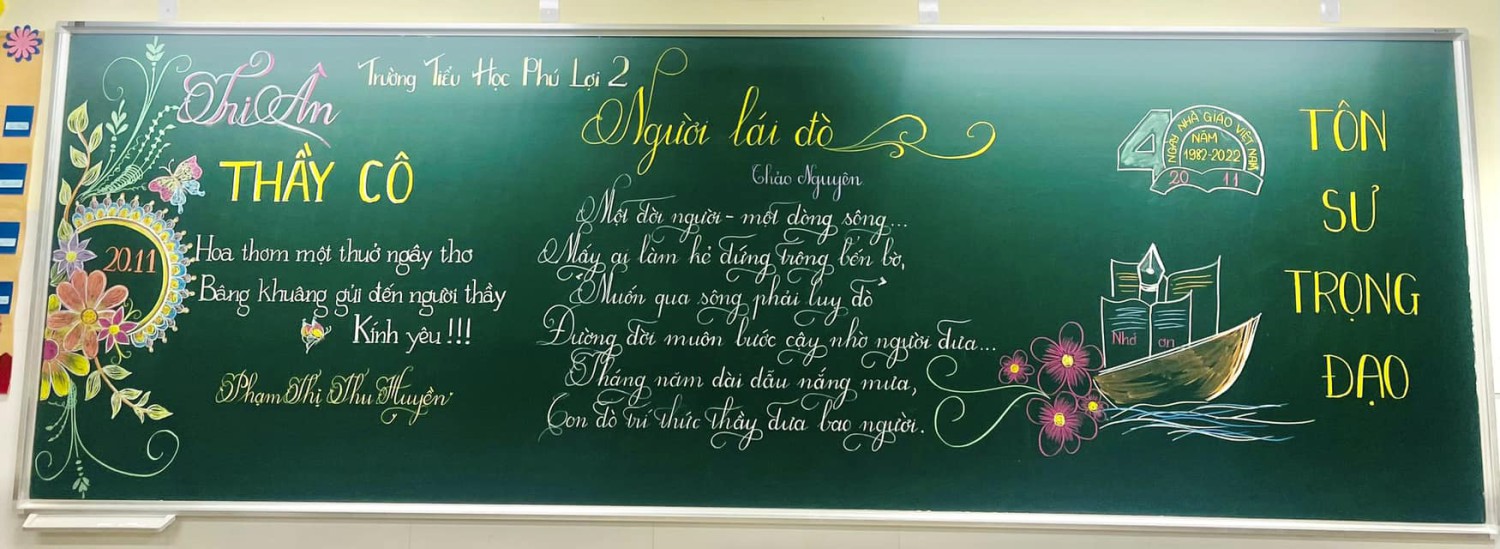 Trường Tiểu Học Phú Lợi 2
Tri Ân
THẦY CÔ
20.11
Hoa thơm một thuở ngây thơ
Bâng khuâng gửi đến người thầy
Kính yêu !!!
Phạm Thị Thu Huyền
Người lái đò
Thảo Nguyên
Một đời người - một dòng sông...
Mấy ai làm kẻ đứng trông bến bờ,
"Muốn qua sông phải luỵ đò"
Đường đời muôn bước cậy nhờ người đưa...
Tháng năm dài dẫu nắng mưa,
Con đò trí thức thầy đưa bao người.
40
NGÀY NHÀ GIÁO VIỆT NAM
NĂM
1982-2022
20 11
Nhớ ơn
TÔN
SƯ
TRỌNG
ĐẠO